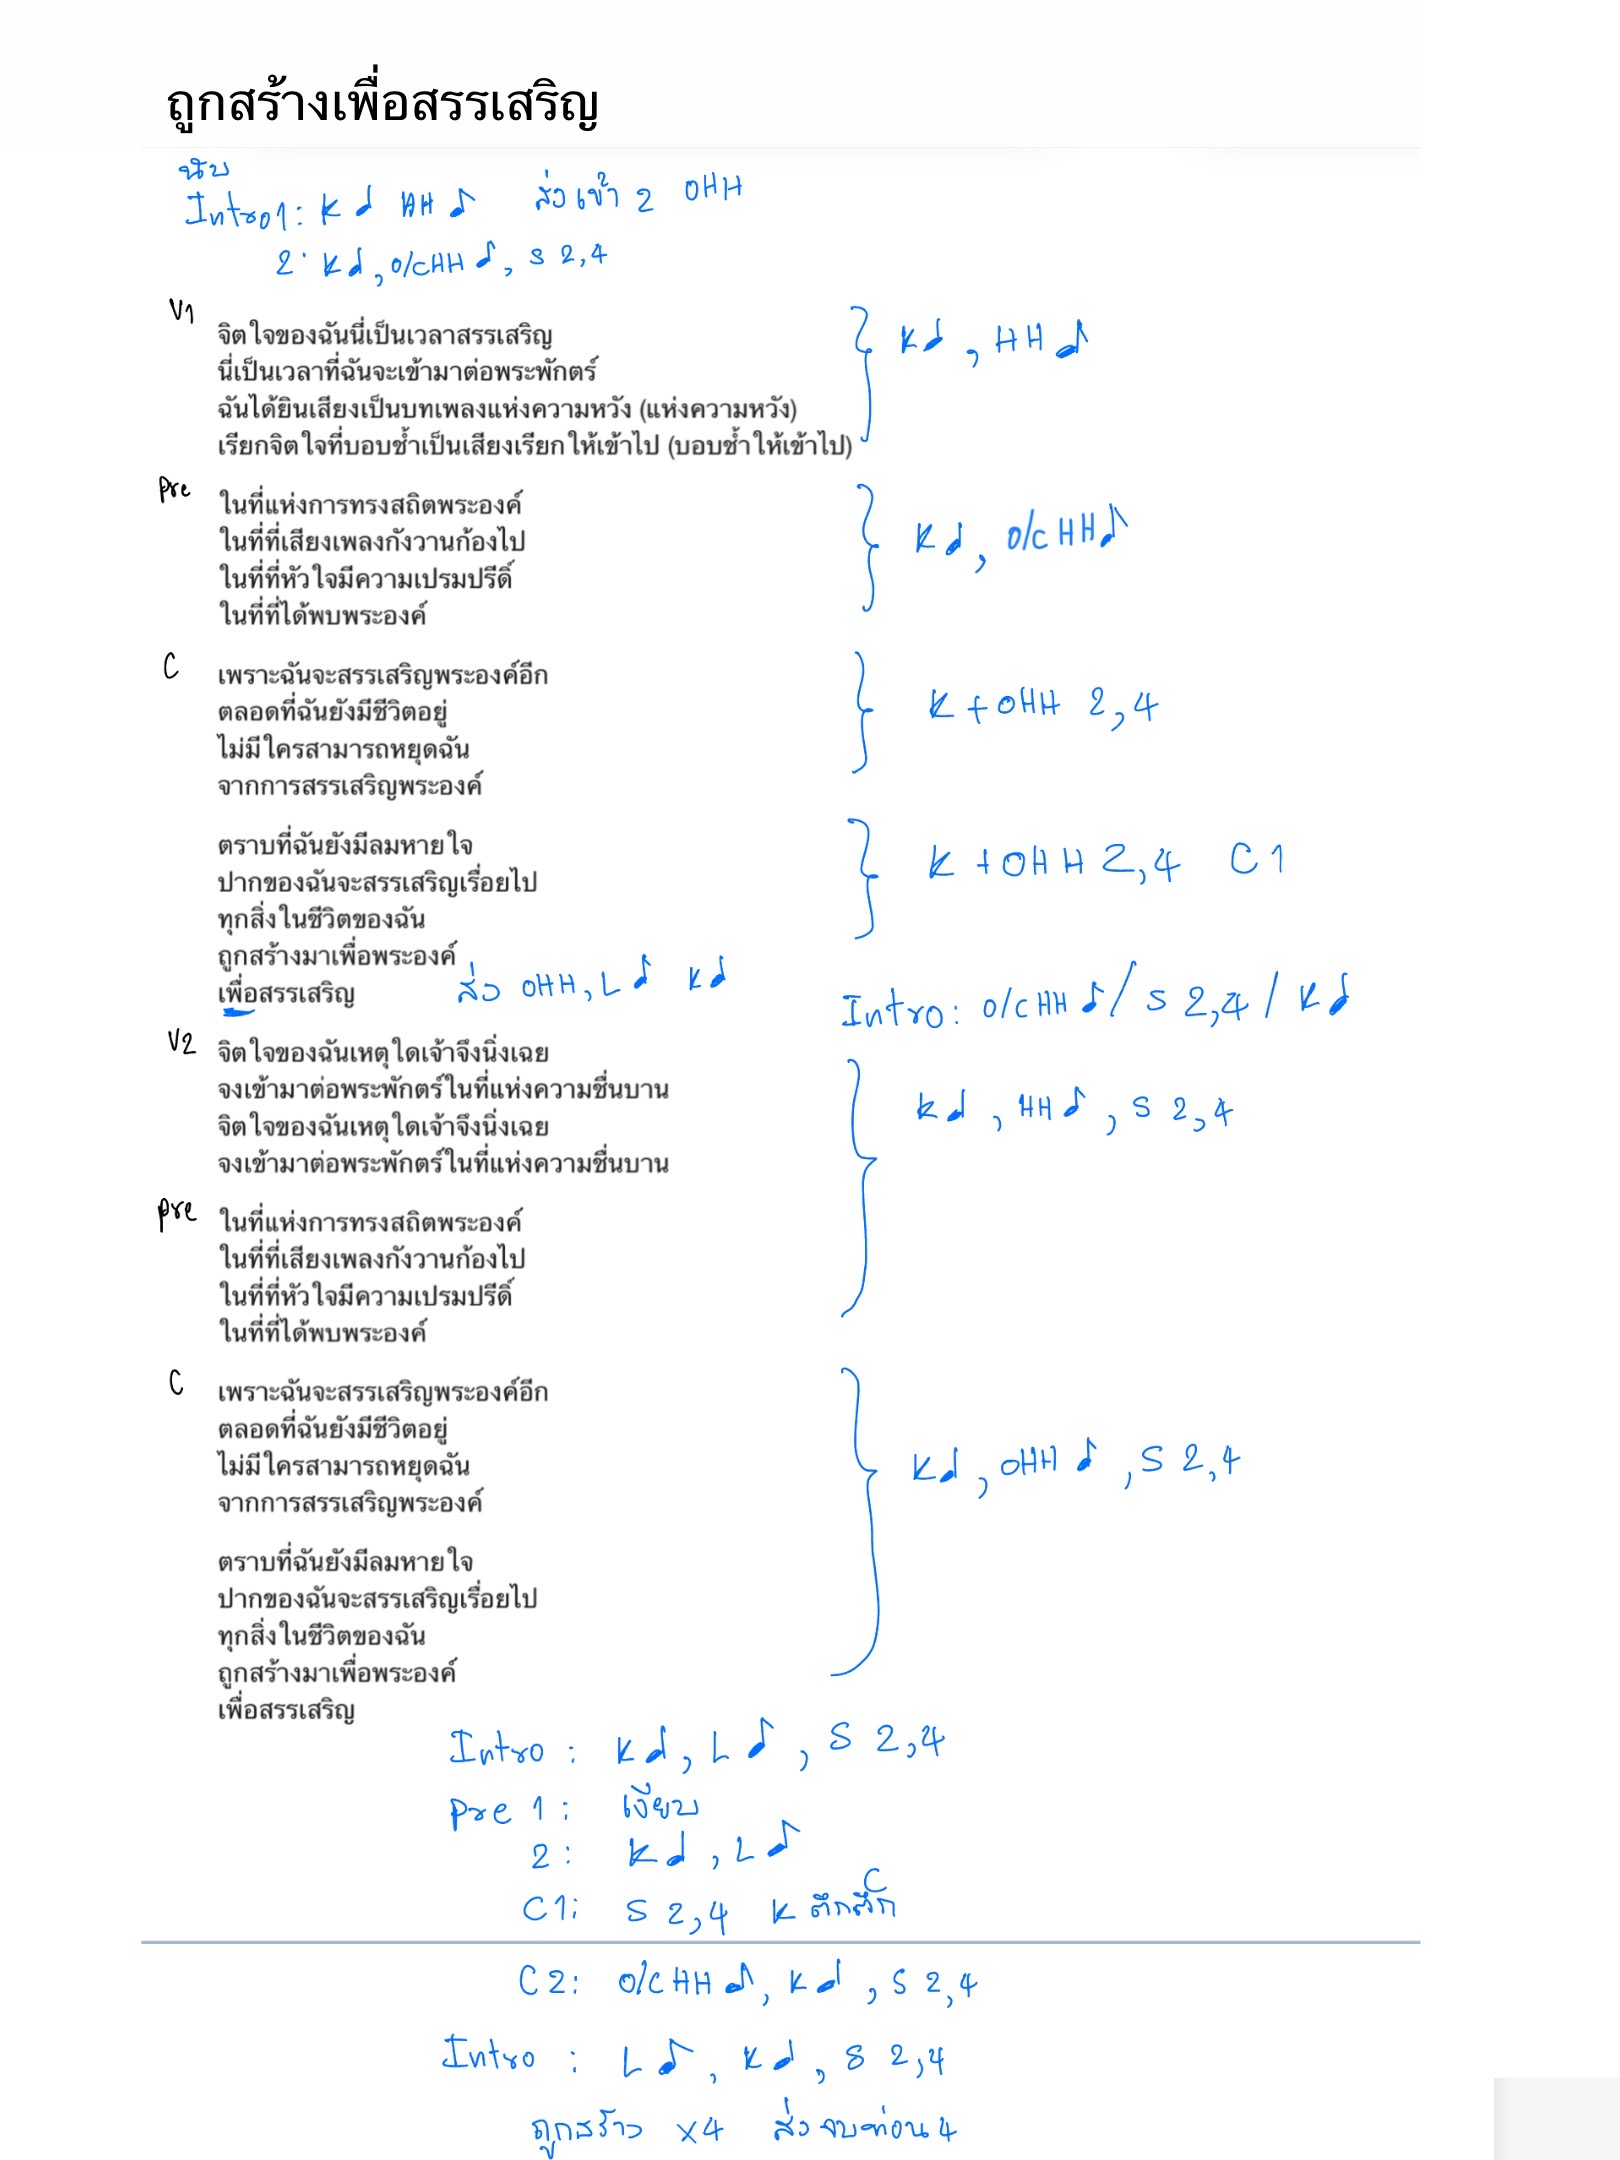 ถูกสร้างเพื่อสรรเสริญ
นับ
Intro1: K ♩ HH ♪ ส่งเข้า 2 OHH
2: K♩, O/CHH ♪, S 2,4
V1
จิตใจของฉันนี่เป็นเวลาสรรเสริญ
นี่เป็นเวลาที่ฉันจะเข้ามาต่อพระพักตร์
ฉันได้ยินเสียงเป็นบทเพลงแห่งความหวัง (แห่งความหวัง)
เรียกจิตใจที่บอบช้ำเป็นเสียงเรียกให้เข้าไป (บอบช้ำให้เข้าไป)
K♩, HH ♪
Pre
ในที่แห่งการทรงสถิตพระองค์
ในที่ที่เสียงเพลงกังวานก้องไป
ในที่ที่หัวใจมีความเปรมปรีดิ์
ในที่ที่ได้พบพระองค์
K♩, O/C HH♪
C
เพราะฉันจะสรรเสริญพระองค์อีก
ตลอดที่ฉันยังมีชีวิตอยู่
ไม่มีใครสามารถหยุดฉัน
จากการสรรเสริญพระองค์
K + OHH 2,4
ตราบที่ฉันยังมีลมหายใจ
ปากของฉันจะสรรเสริญเรื่อยไป
ทุกสิ่งในชีวิตของฉัน
ถูกสร้างมาเพื่อพระองค์
เพื่อสรรเสริญ
K + OHH 2,4 C1
ส่ง OHH, L ♪ K♩
Intro: O/C HH ♪ / S 2,4 / K♩
V2
จิตใจของฉันเหตุใดเจ้าจึงนิ่งเฉย
จงเข้ามาต่อพระพักตร์ในที่แห่งความชื่นบาน
จิตใจของฉันเหตุใดเจ้าจึงนิ่งเฉย
จงเข้ามาต่อพระพักตร์ในที่แห่งความชื่นบาน
K♩, HH ♪, S 2,4
pre
ในที่แห่งการทรงสถิตพระองค์
ในที่ที่เสียงเพลงกังวานก้องไป
ในที่ที่หัวใจมีความเปรมปรีดิ์
ในที่ที่ได้พบพระองค์
C
เพราะฉันจะสรรเสริญพระองค์อีก
ตลอดที่ฉันยังมีชีวิตอยู่
ไม่มีใครสามารถหยุดฉัน
จากการสรรเสริญพระองค์
K♩, OHH ♪, S 2,4
ตราบที่ฉันยังมีลมหายใจ
ปากของฉันจะสรรเสริญเรื่อยไป
ทุกสิ่งในชีวิตของฉัน
ถูกสร้างมาเพื่อพระองค์
เพื่อสรรเสริญ
Intro: K♩, L ♪, S 2,4
Pre 1: เงียบ
2: K♩, L ♪
C1: S 2,4 K
C2: O/C HH ♪, K♩, S 2,4
Intro: L ♪, K♩, S 2,4
ถูกสร้าง x4 ส่งจบท่อน 4